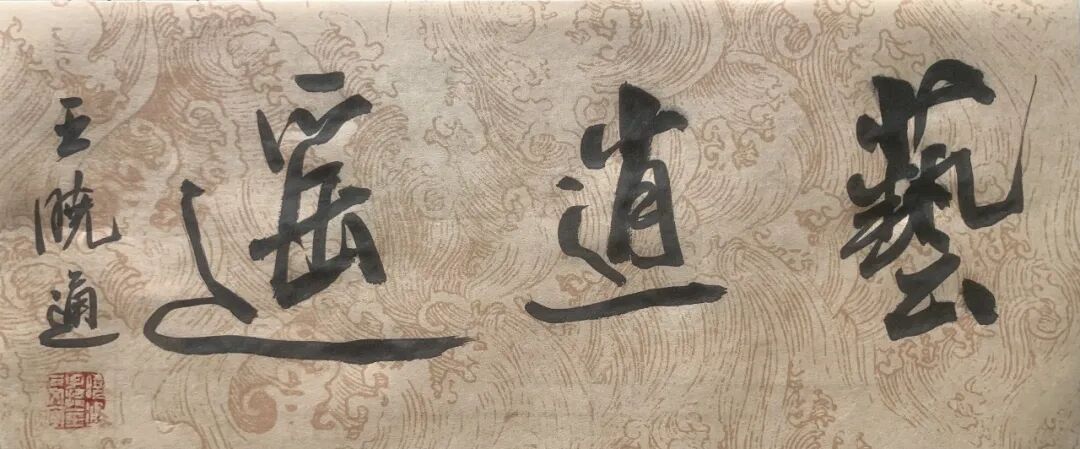 藝逍遥
王曉通